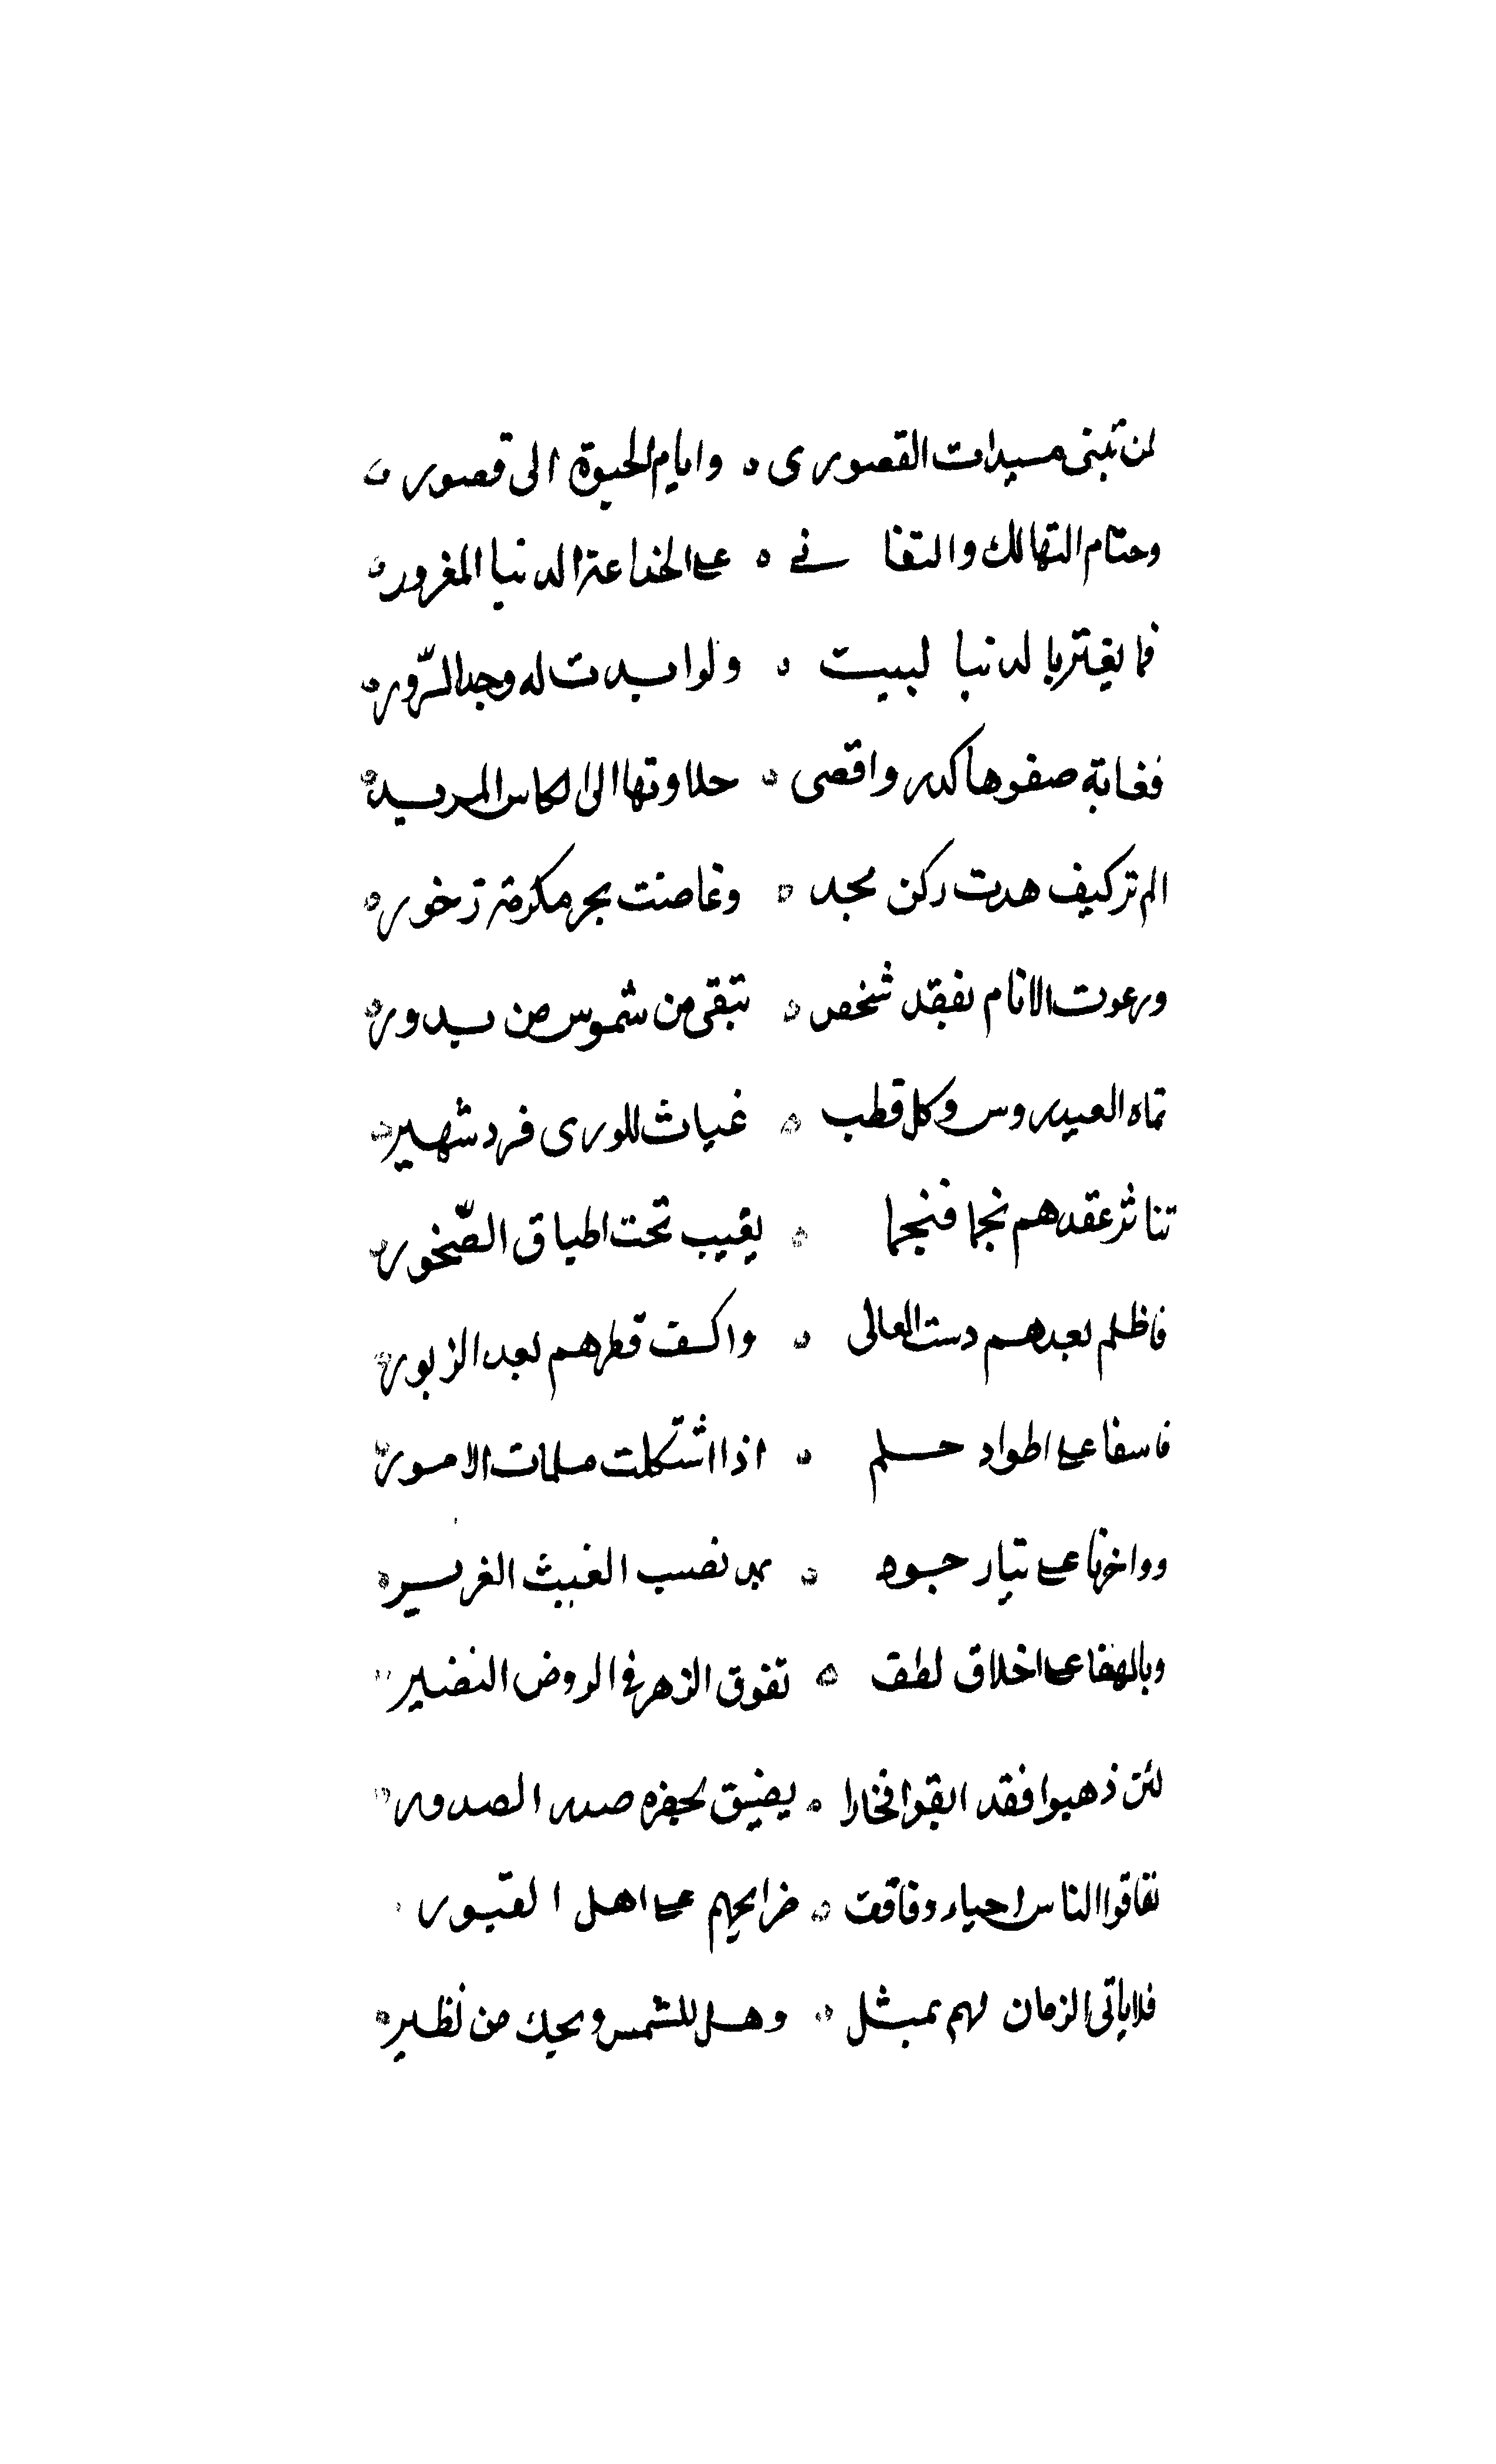 لمن تبنى مسيدات القصورى ه وايام الحيوة الى قصور ه
وحتام التهالك والتفا نے ه على الخداعة الدنيا الغرور ه
فما يغتر بالدنيا لبيب ه ولو ابدت له وجه السّرور ه
فغاية صفوها كدر واقصى ه حلاوتها الى الكاس المرير ه
الم تر كيف هدت ركن مجد ه وغاضت بحر مكرمة زخور ه
ورعوت الانام بفقد شخص ه تبقى من شموس من بدور ه
نماه العيدروس وكل قطب ه غياث للورى فرد شهير ه
تناثر عقدهم نجما فنجما ه يغيب تحت اطباق الصّخور ه
فاظلم بعدهم دست المعالى ه واكسف قطرهم بعد الزبور ه
فاسفا على اطواد حلم ه اذا اشتكلت ملمات الامور ه
وواحزنا على تيار جود ه نصيب الغيث الغزير ه
ويالهفا على اخلاق لطف ه تفوق الزهر فى الروض النضير
لئن ذهبوا فقد ابقوا فخارا ه يضيق بحفره صدر الصدور
لفاقوا الناس احياء وفاقت ه ضرايحهم على اهل القبور
فلا ياتى الزمان لهم بمثل ه وهل للشمس ويحك من نظير ه